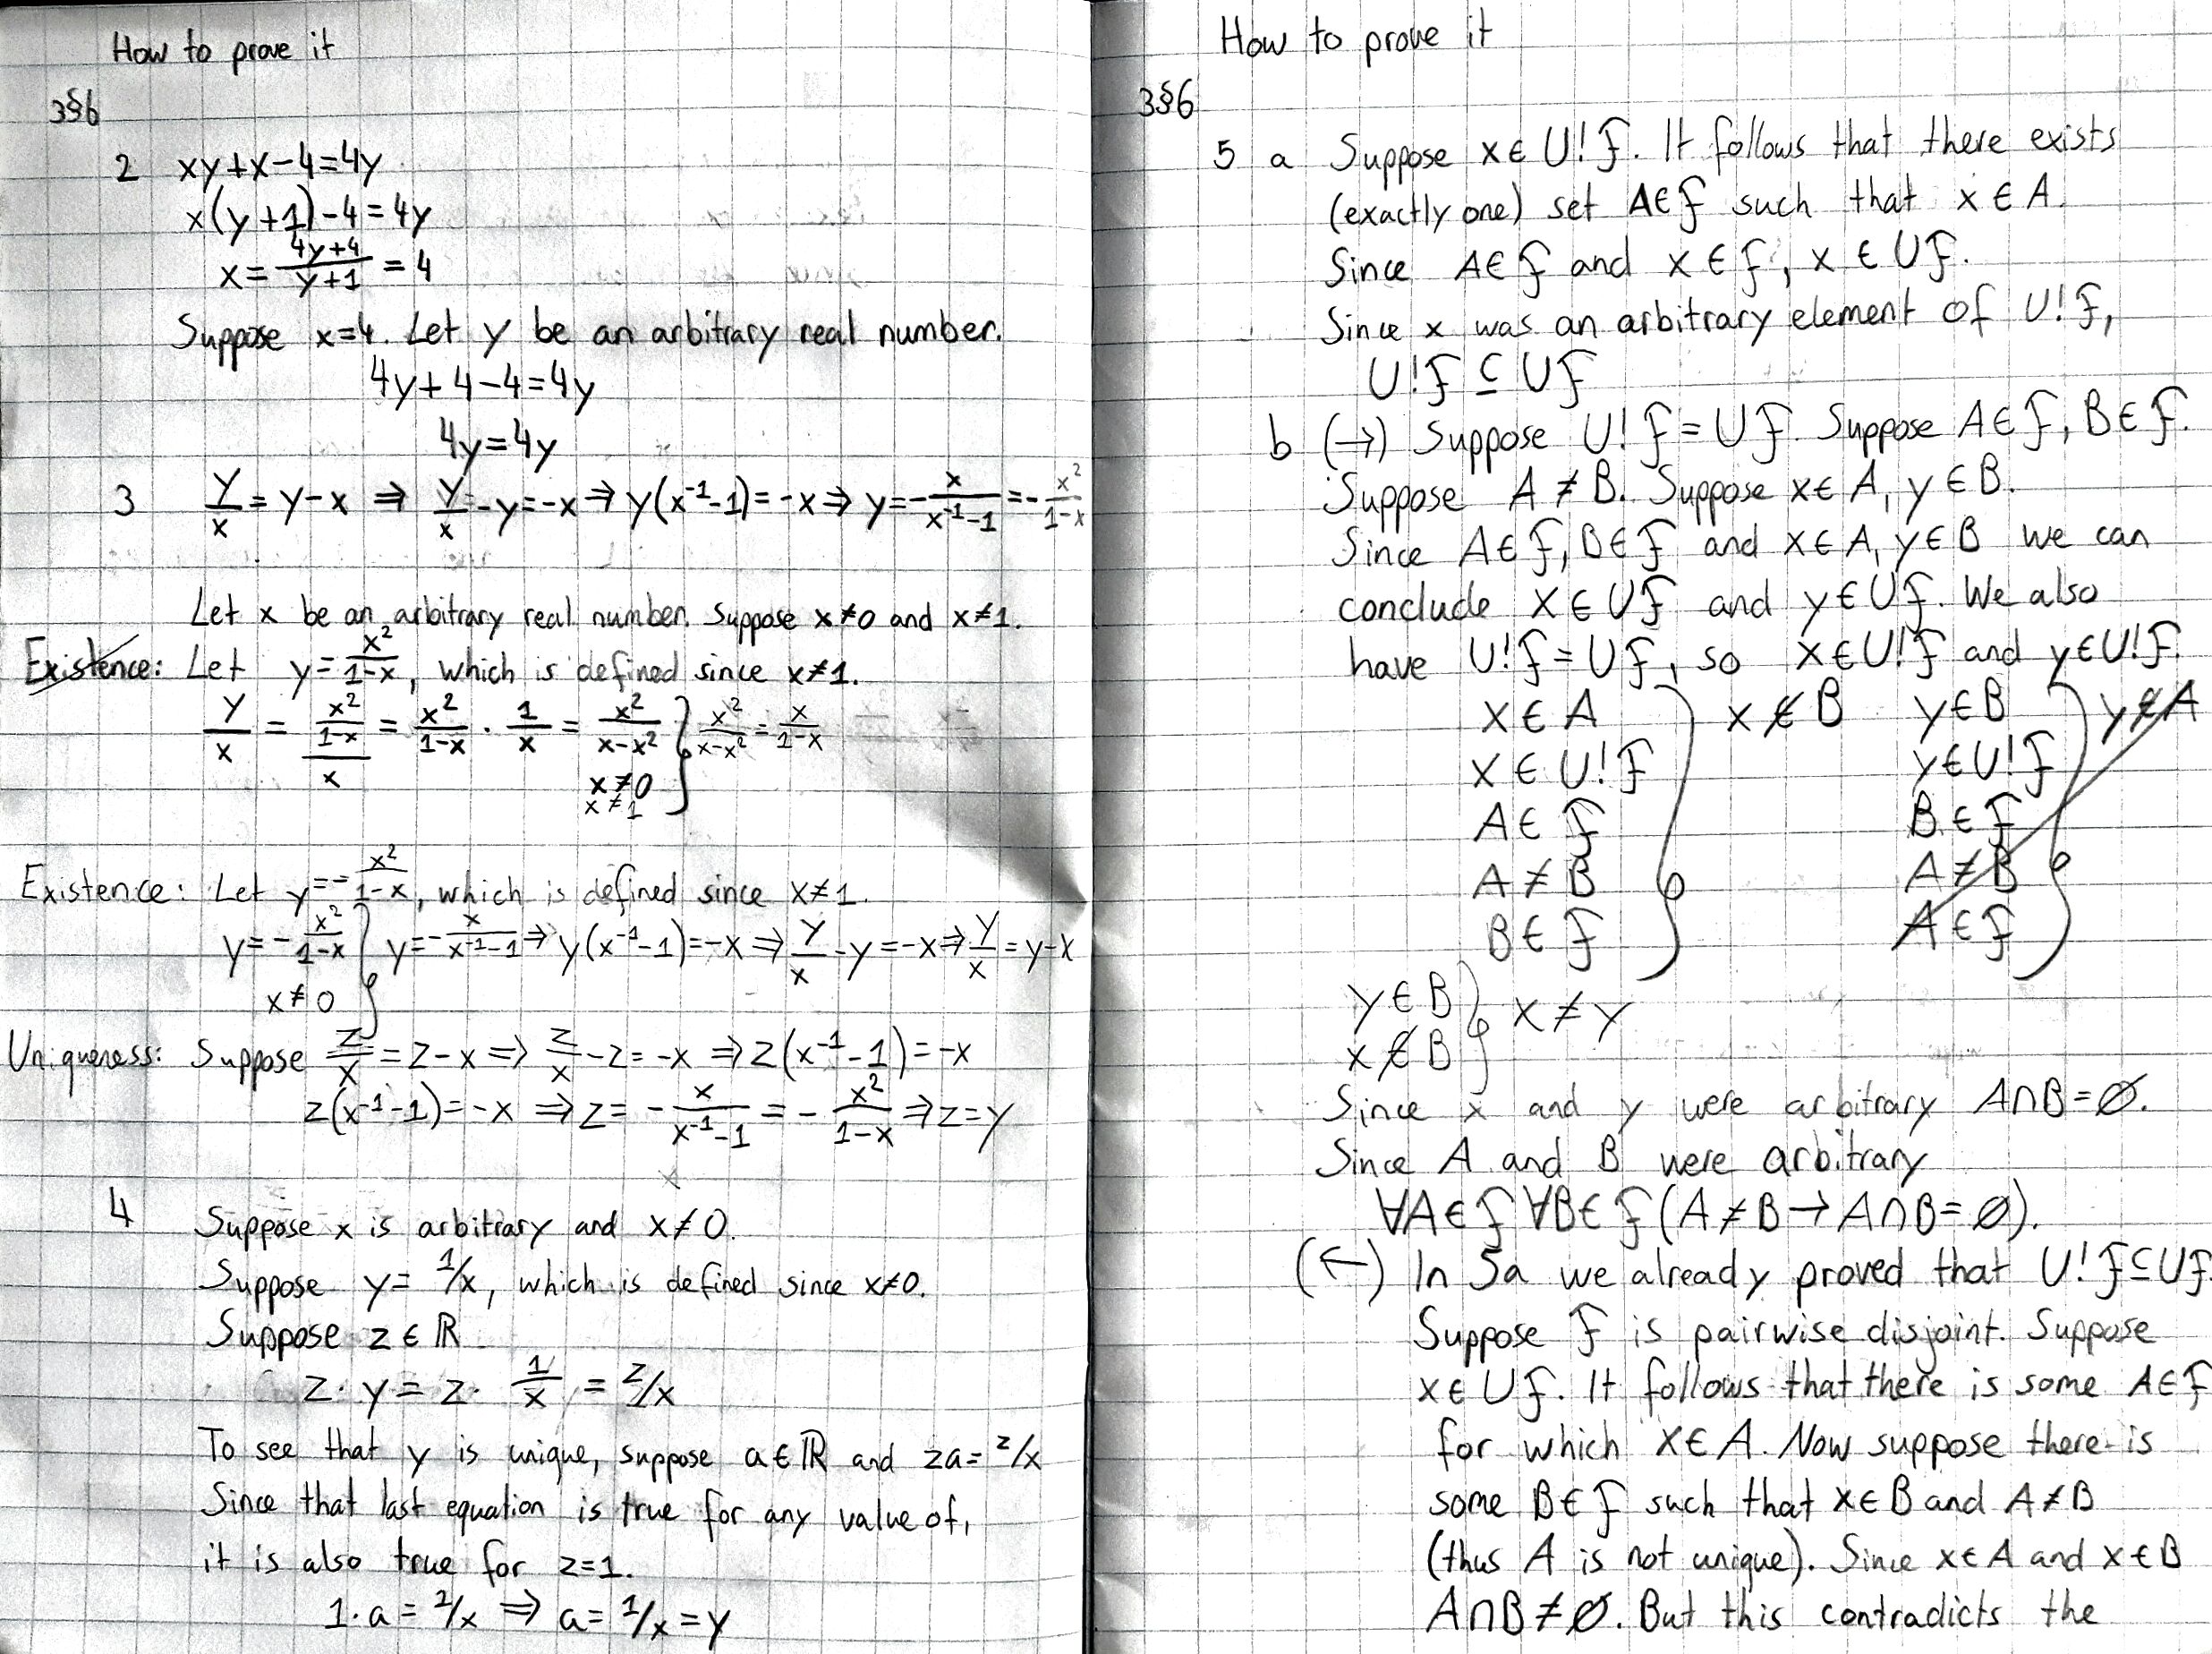 How to prove it
3§6
2 xy+x-4=4y
x(y+1)-4=4y
x=\frac{4y+4}{y+1}=4
Suppose x=4. Let y be an arbitrary real number.
4y+4-4=4y
4y=4y
3 \frac{y}{x}=y-x ⇒ \frac{y}{x}-y=-x ⇒ y(x^{-1}-1)=-x ⇒ y=-\frac{x}{x^{-1}-1}=-\frac{x^2}{1-x}
Let x be an arbitrary real number. Suppose x≠0 and x≠1.
Existence: Let y=\frac{x^2}{1-x}, which is defined since x≠1.
\frac{y}{x}=\frac{\frac{x^2}{1-x}}{x}=\frac{x^2}{1-x}·\frac{1}{x}=\frac{x^2}{x-x^2} } \frac{x^2}{x-x^2}=\frac{x}{1-x}
x≠0
x≠1
Existence: Let y=-\frac{x^2}{1-x}, which is defined since x≠1.
y=-\frac{x^2}{1-x} } y=-\frac{x}{x^{-1}-1} ⇒ y(x^{-1}-1)=-x ⇒ \frac{y}{x}-y=-x ⇒ \frac{y}{x}=y-x
x≠0
Uniqueness: Suppose \frac{z}{x}=z-x ⇒ \frac{z}{x}-z=-x ⇒ z(x^{-1}-1)=-x
z(x^{-1}-1)=-x ⇒ z=-\frac{x}{x^{-1}-1}=-\frac{x^2}{1-x} ⇒ z=y
4 Suppose x is arbitrary and x≠0.
Suppose y=1/x, which is defined since x≠0.
Suppose z∈ℝ
z·y=z·\frac{1}{x}=z/x
To see that y is unique, suppose a∈ℝ and za=z/x
Since that last equation is true for any value of,
it is also true for z=1.
1·a=1/x ⇒ a=1/x=y
How to prove it
3§6
5 a Suppose x∈∪!F. It follows that there exists
(exactly one) set A∈F such that x∈A.
Since A∈F and x∈F, x∈∪F.
Since x was an arbitrary element of ∪!F,
∪!F⊆∪F
b (→) Suppose ∪!F=∪F. Suppose A∈F, B∈F.
Suppose A≠B. Suppose x∈A, y∈B.
Since A∈F, B∈F and x∈A, y∈B we can
conclude x∈∪F and y∈∪F. We also
have ∪!F=∪F, so x∈∪!F and y∈∪!F.
x∈A } x∉B y∈B } y∉A
x∈∪!F y∈∪!F
A∈F B∈F
A≠B A≠B
B∈F A∈F
y∈B } x≠y
x∉B
Since x and y were arbitrary A∩B=∅.
Since A and B were arbitrary
∀A∈F ∀B∈F (A≠B→A∩B=∅).
(←) In 5a we already proved that ∪!F⊆∪F.
Suppose F is pairwise disjoint. Suppose
x∈∪F. It follows that there is some A∈F
for which x∈A. Now suppose there is
some B∈F such that x∈B and A≠B
(thus A is not unique). Since x∈A and x∈B
A∩B≠∅. But this contradicts the